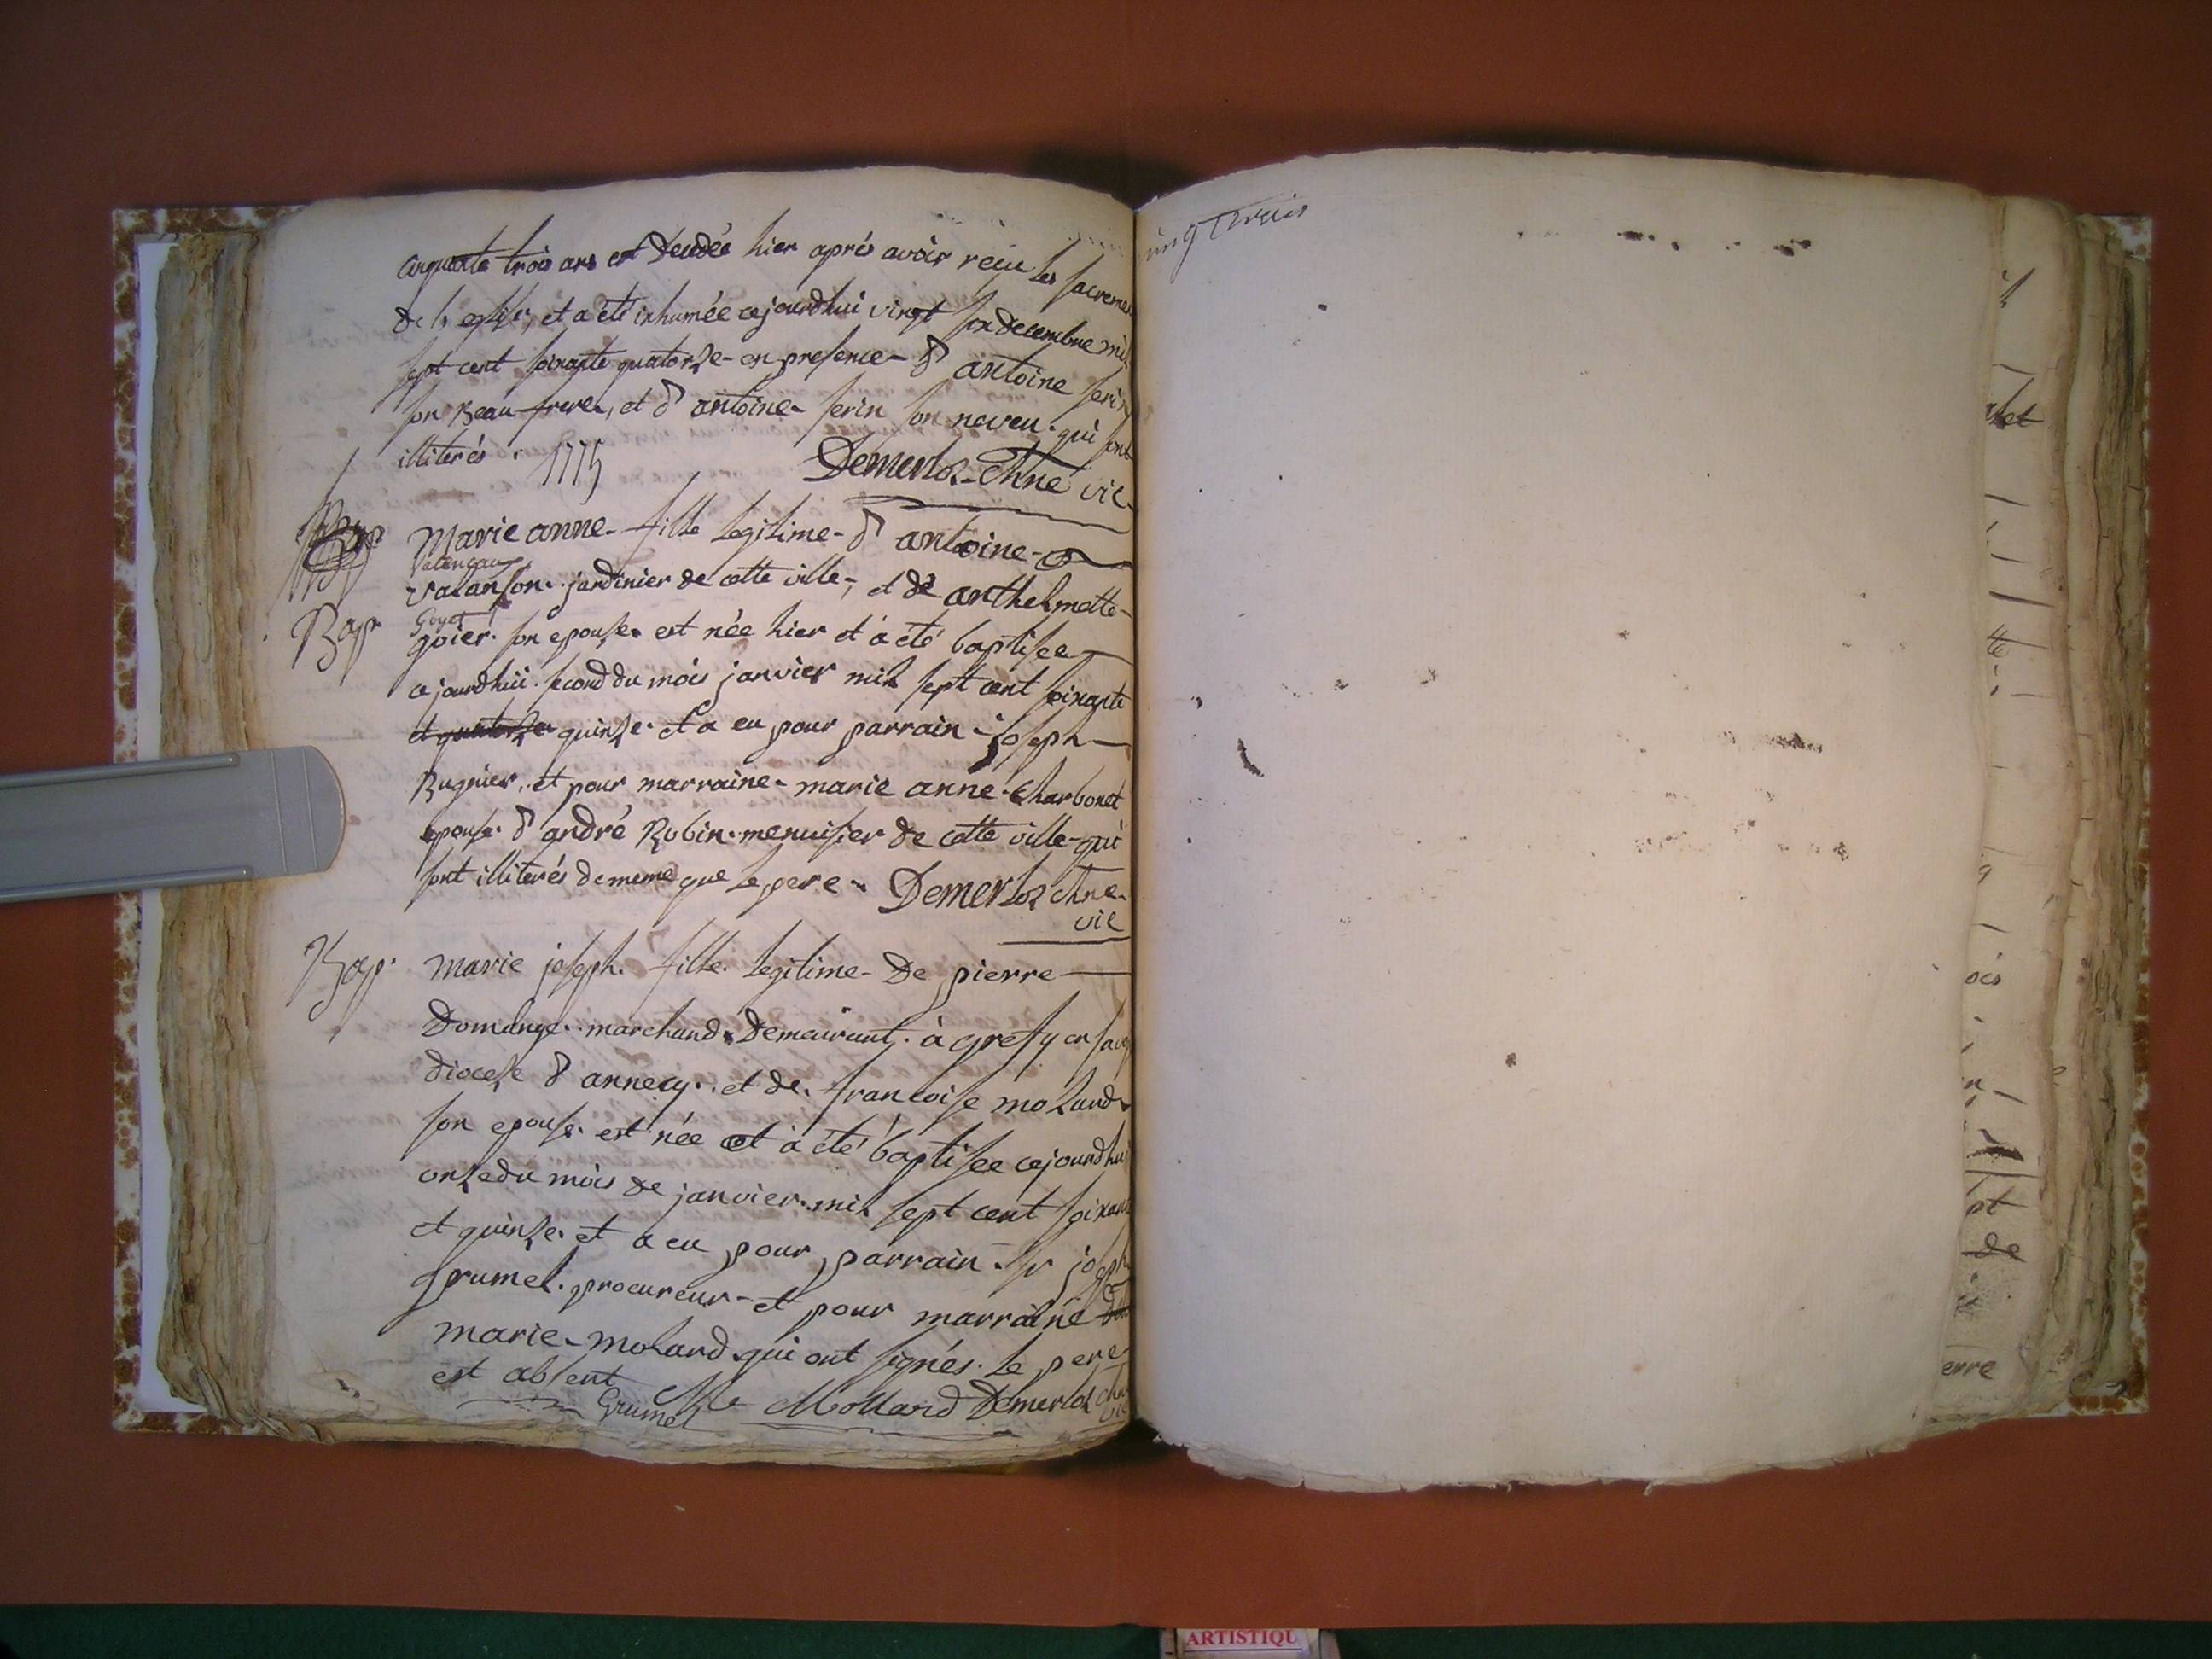 cinquante trois ans est decedée hier aprés avoir reçu les sacremen
de l'eglise, et a été inhumée cejourdhui vingt six decembre mil
sept cent soixante quatorze en presence d'antoine serin
son beau frere, et d'antoine serin son neveu qui sont
illiterés. 1775
Demerloz Chne vic
Bap
Marie anne fille legitime d'antoine
Valençan
valanson jardinier de cette ville, et de anthelmette
Bap.
Goyet
goier son epouse est née hier et à été baptisée
cejourdhui second du mois janvier mil sept cent soixante
et quatorze quinze et a eu pour parrain joseph
Bugnier, et pour marraine marie anne Charbonet
epouse d'andré Robin menuisier de cette ville qui
sont illiterés de meme que le pere. Demerloz Chne
vic
Bap. Marie joseph fille legitime de pierre
Domenge marchand demeurant à gresy en savoy
diocese d'annecy et de francoise molard
son epouse est née et à été baptisée cejourdhui
onze du mois de janvier mil sept cent soixant
et quinze et a eu pour parrain sr joseph
grumel procureur et pour marraine
marie molard qui ont signés. le pere
est absent
Grumel Mollard Demerloz Chne
vic
ung trois
alet
tte
ois
pt
de
erre
ARTISTIQU